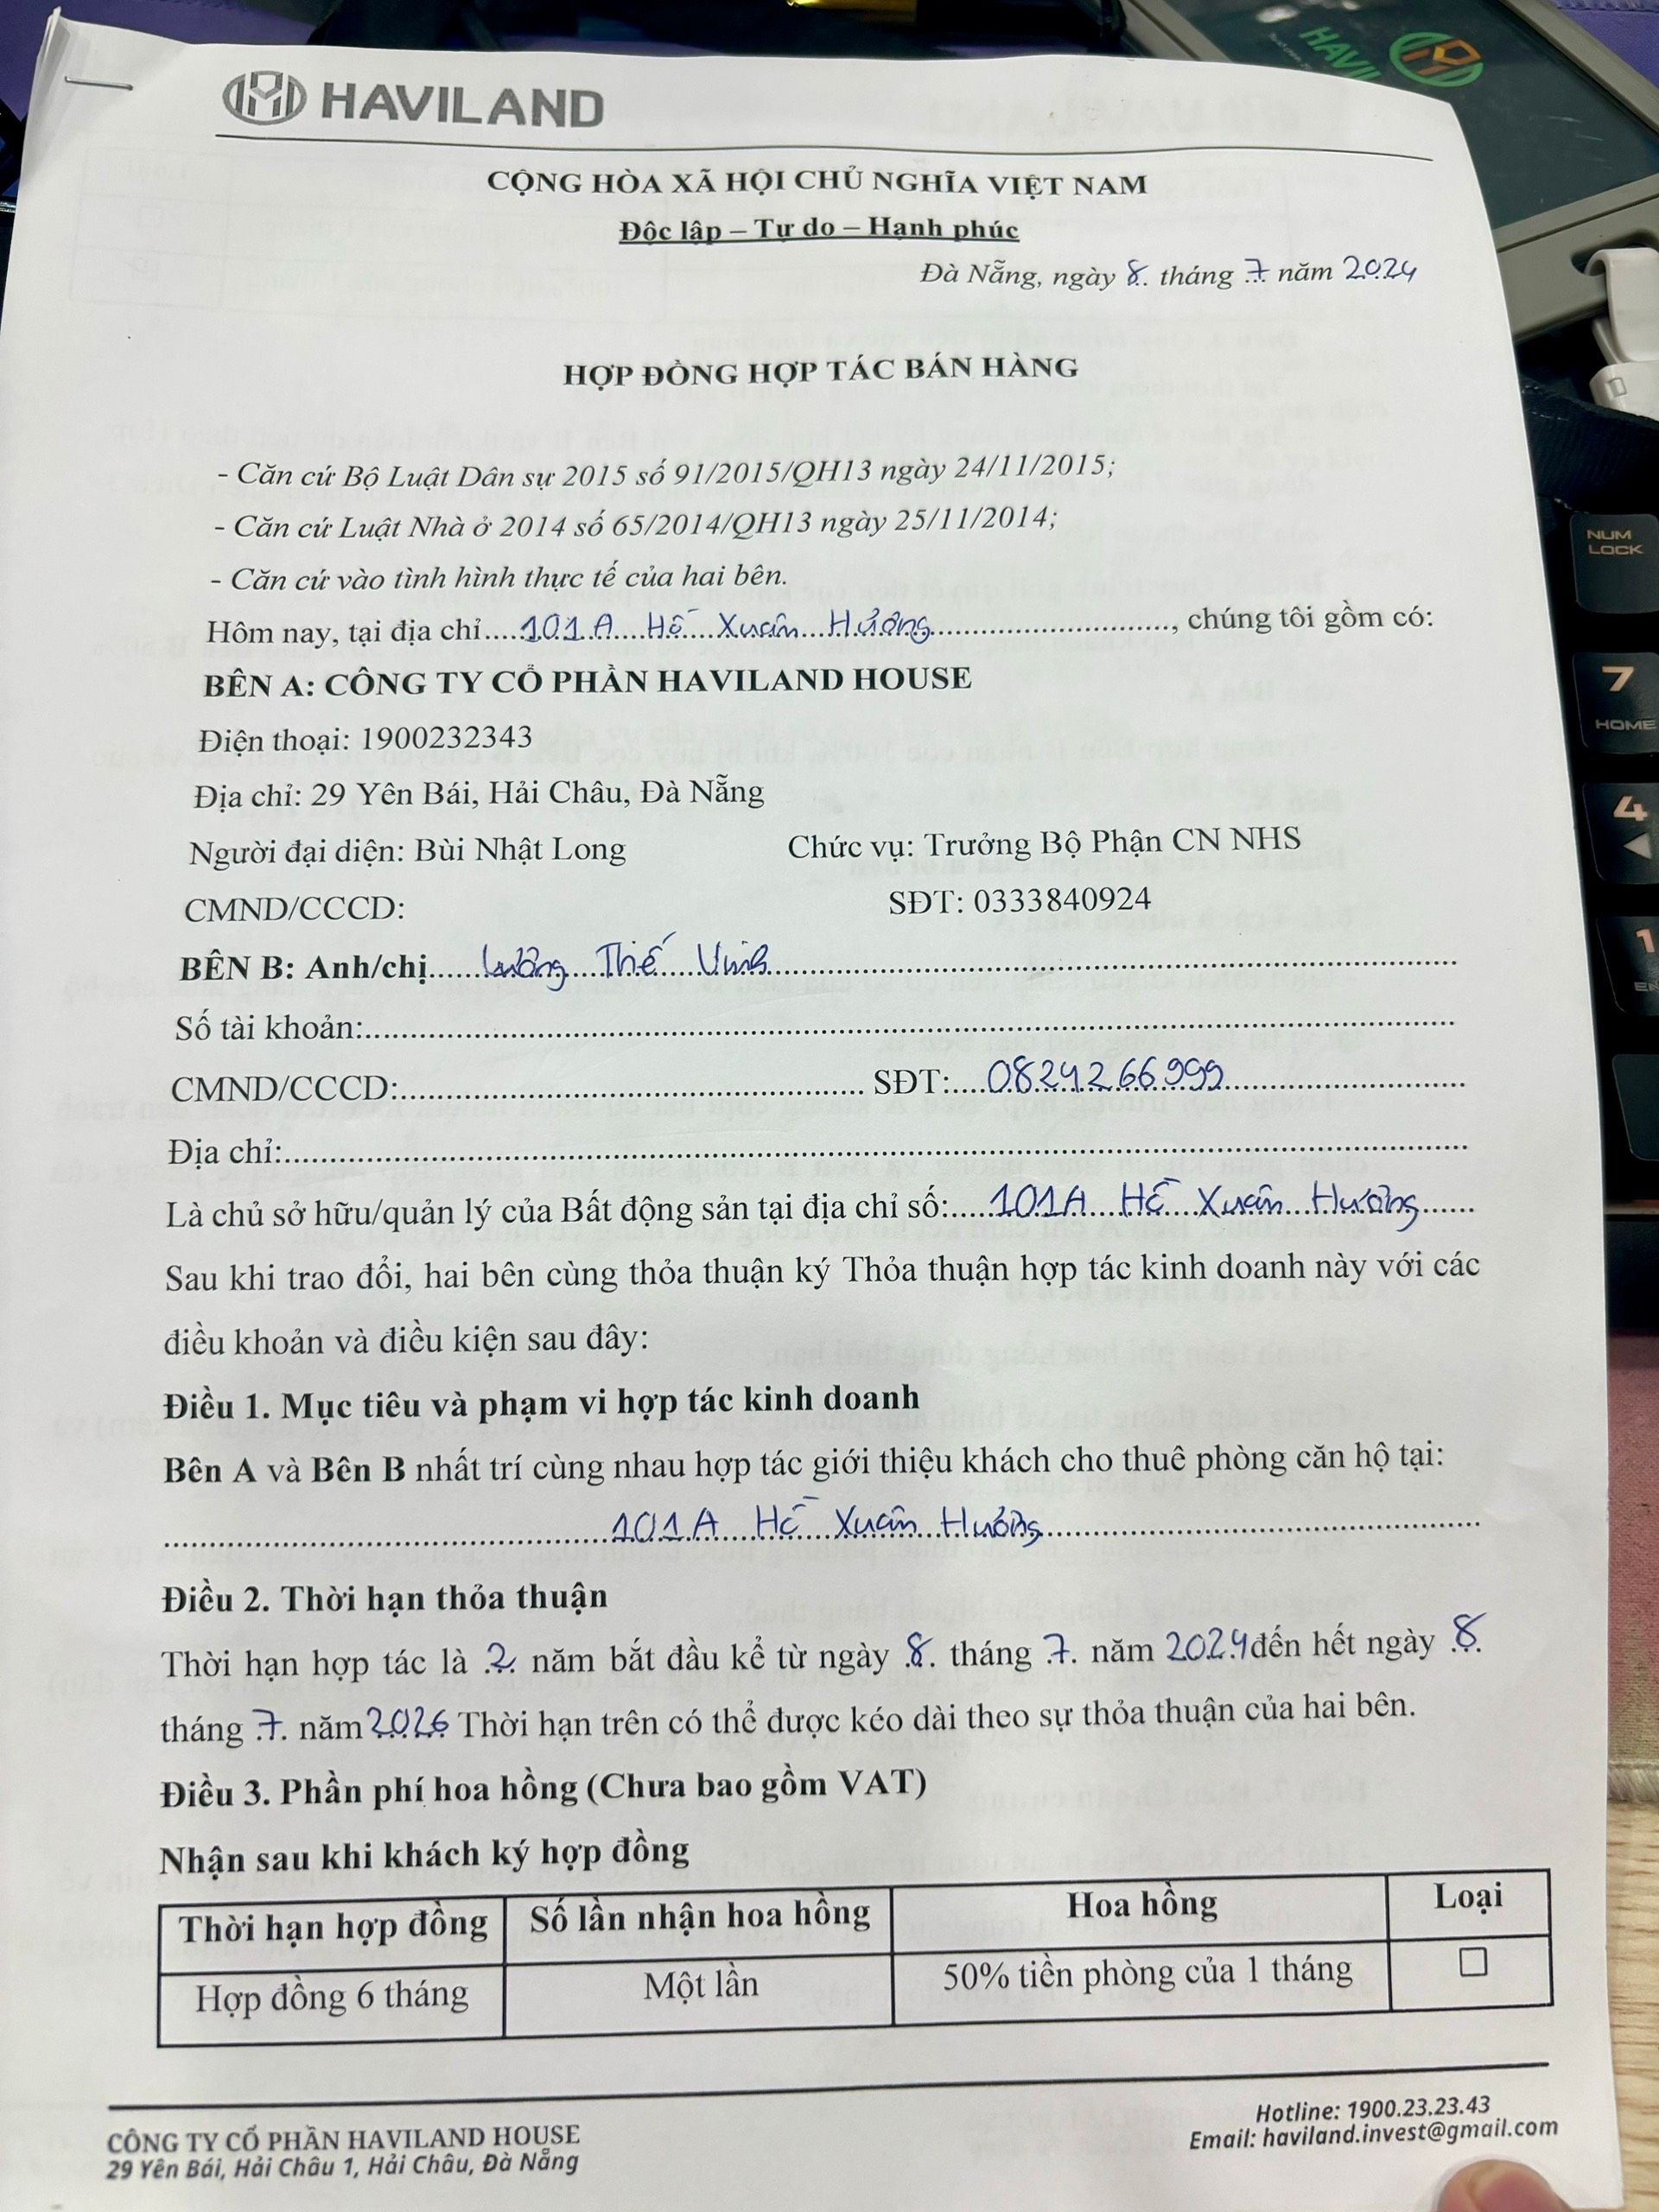 HAVILAND
CỘNG HÒA XÃ HỘI CHỦ NGHĨA VIỆT NAM
Độc lập – Tự do – Hạnh phúc
Đà Nẵng, ngày 8 tháng 7 năm 2024
HỢP ĐỒNG HỢP TÁC BÁN HÀNG
- Căn cứ Bộ Luật Dân sự 2015 số 91/2015/QH13 ngày 24/11/2015;
- Căn cứ Luật Nhà ở 2014 số 65/2014/QH13 ngày 25/11/2014;
- Căn cứ vào tình hình thực tế của hai bên.
Hôm nay, tại địa chỉ.....101A Hồ Xuân Hương..............................., chúng tôi gồm có:
BÊN A: CÔNG TY CỔ PHẦN HAVILAND HOUSE
Điện thoại: 1900232343
Địa chỉ: 29 Yên Bái, Hải Châu, Đà Nẵng
Người đại diện: Bùi Nhật Long Chức vụ: Trưởng Bộ Phận CN NHS
CMND/CCCD: SĐT: 0333840924
BÊN B: Anh/chị......Lương Thế Vinh
Số tài khoản:
CMND/CCCD: SĐT:....0824266999
Địa chỉ:
Là chủ sở hữu/quản lý của Bất động sản tại địa chỉ số:.....101A Hồ Xuân Hương
Sau khi trao đổi, hai bên cùng thỏa thuận ký Thỏa thuận hợp tác kinh doanh này với các
điều khoản và điều kiện sau đây:
Điều 1. Mục tiêu và phạm vi hợp tác kinh doanh
Bên A và Bên B nhất trí cùng nhau hợp tác giới thiệu khách cho thuê phòng căn hộ tại:
101A Hồ Xuân Hương
Điều 2. Thời hạn thỏa thuận
Thời hạn hợp tác là 2 năm bắt đầu kể từ ngày 8 tháng 7 năm 2024 đến hết ngày 8
tháng 7 năm 2026 Thời hạn trên có thể được kéo dài theo sự thỏa thuận của hai bên.
Điều 3. Phần phí hoa hồng (Chưa bao gồm VAT)
Nhận sau khi khách ký hợp đồng
Thời hạn hợp đồng Số lần nhận hoa hồng Hoa hồng Loại
Hợp đồng 6 tháng Một lần 50% tiền phòng của 1 tháng ☐
CÔNG TY CỔ PHẦN HAVILAND HOUSE
29 Yên Bái, Hải Châu 1, Hải Châu, Đà Nẵng
Hotline: 1900.23.23.43
Email: haviland.invest@gmail.com
HAVIL
NUM
LOCK
7
HOME
4
1